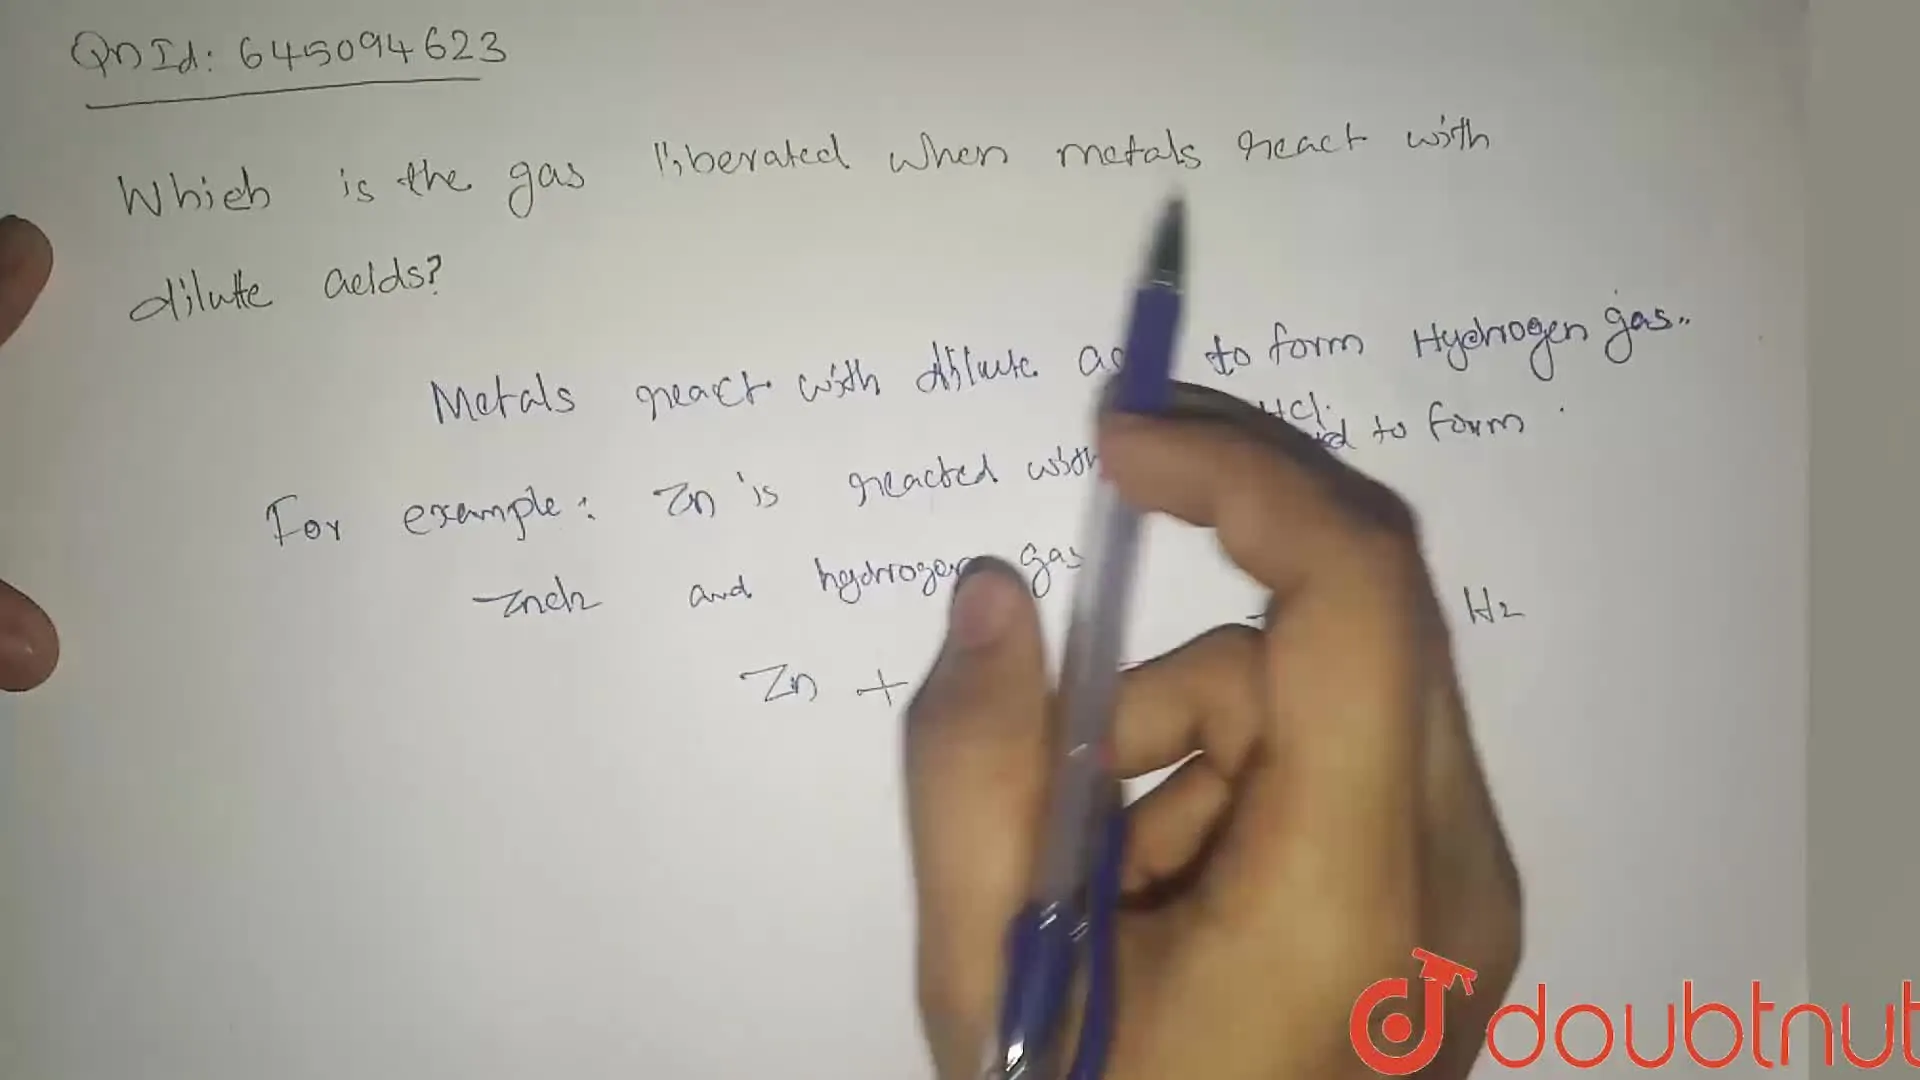 QnId: 645094623
Which is the gas liberated when metals react with
dilute acids?
Metals react with dilute to form Hydrogen gas..
HCl
For example: Zn is reacted with to form
ZnCl2 and hydrogen gas
H2
Zn +
doubtnut